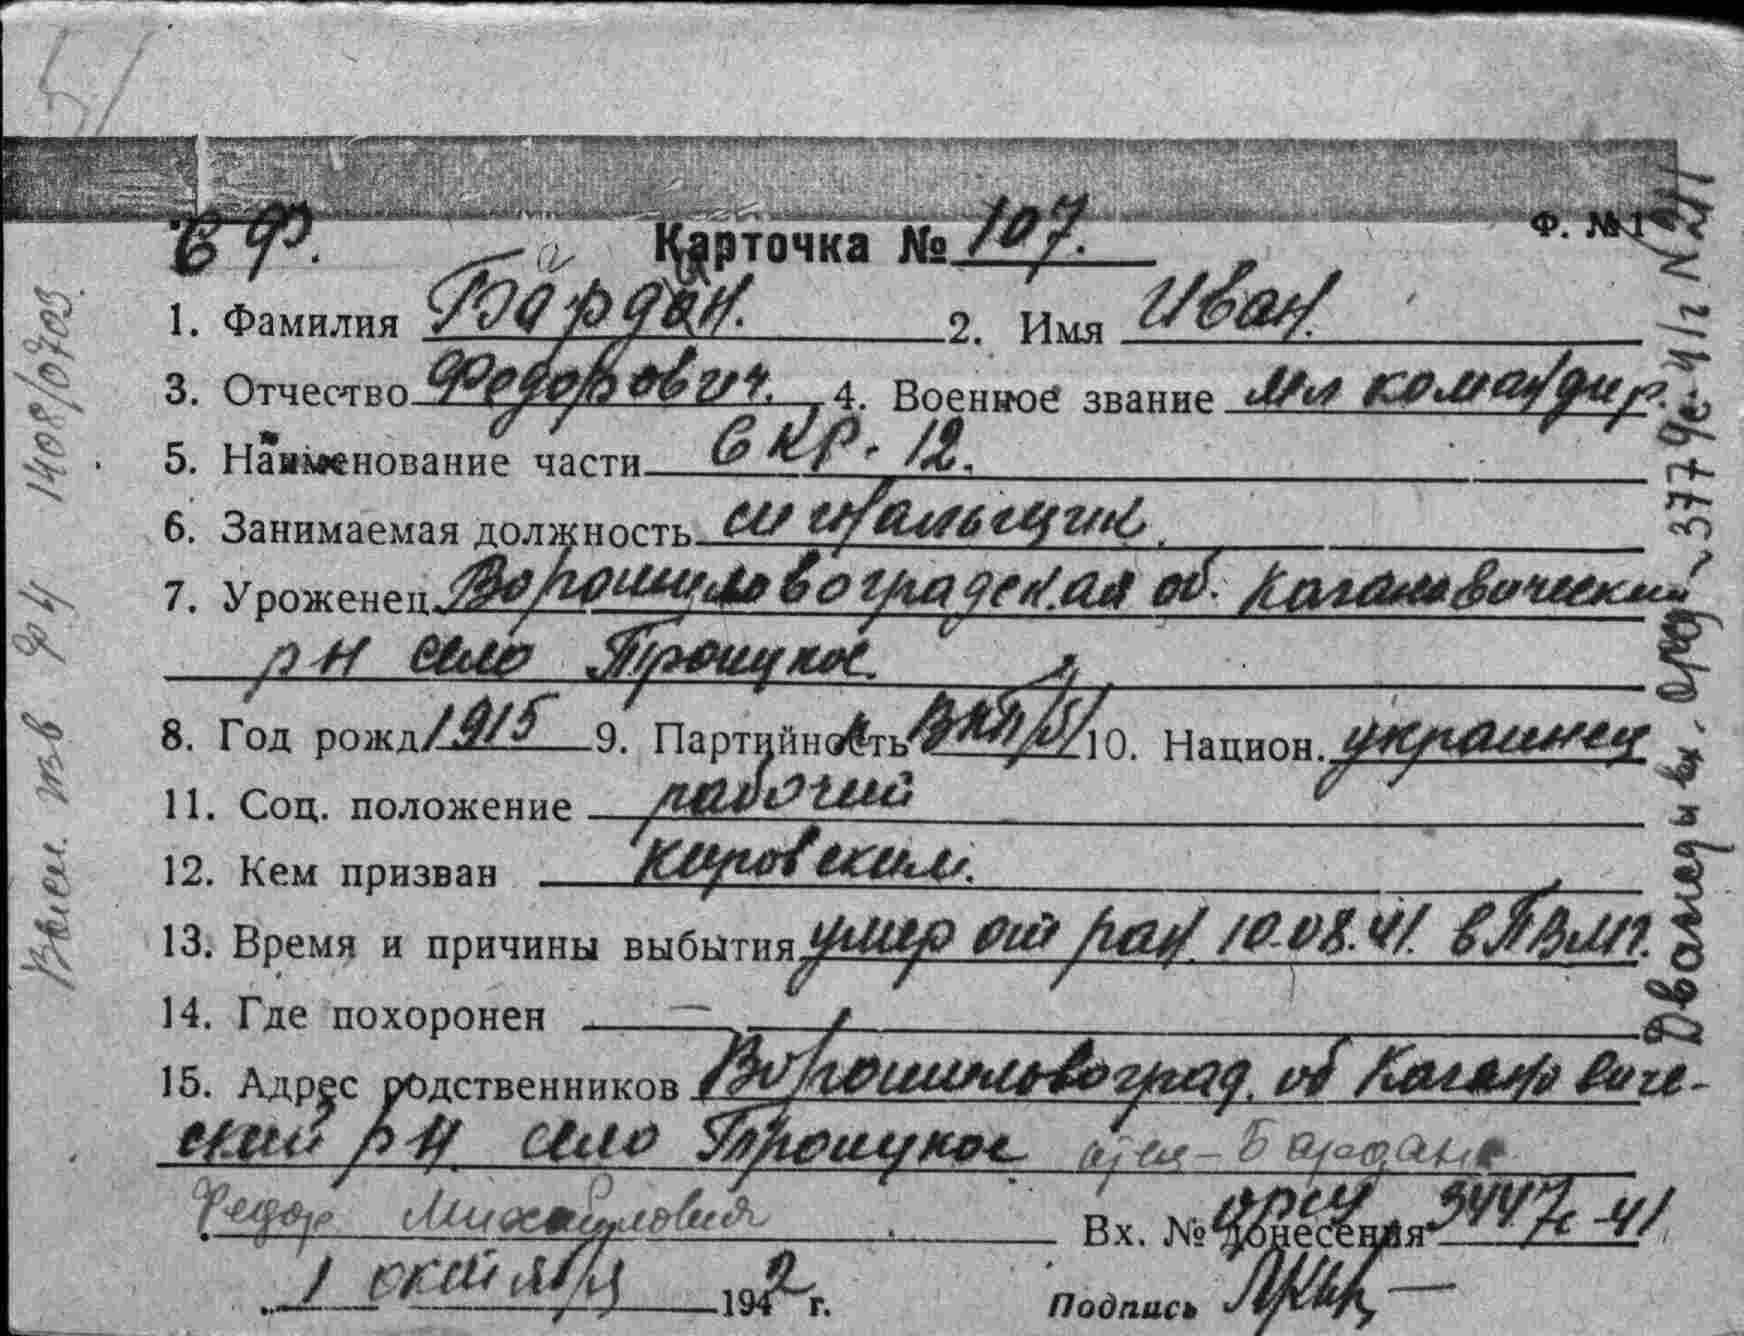 51
Ф. №1
Карточка № 107.
1. Фамилия Бардан. 2. Имя Иван.
3. Отчество Федорович. 4. Военное звание мл командир.
5. Наименование части СКР. 12.
6. Занимаемая должность сигнальщик.
7. Уроженец Ворошиловоградская об. Кагановический
р-н село Троицкое
8. Год рожд 1915 9. Партийность ВКП/б/ 10. Национ. украинец
11. Соц. положение рабочий
12. Кем призван Кировским.
13. Время и причины выбытия умер от ран 10.08.41. в ПВМГ.
14. Где похоронен —
15. Адрес родственников Ворошиловоград. об Кагановиче-
ский р-н село Троицкое отец - Бардан
Федор Михайлович
Вх. № донесения 3447с-41
1 октября 1942 г.
Подпись
1408/0703